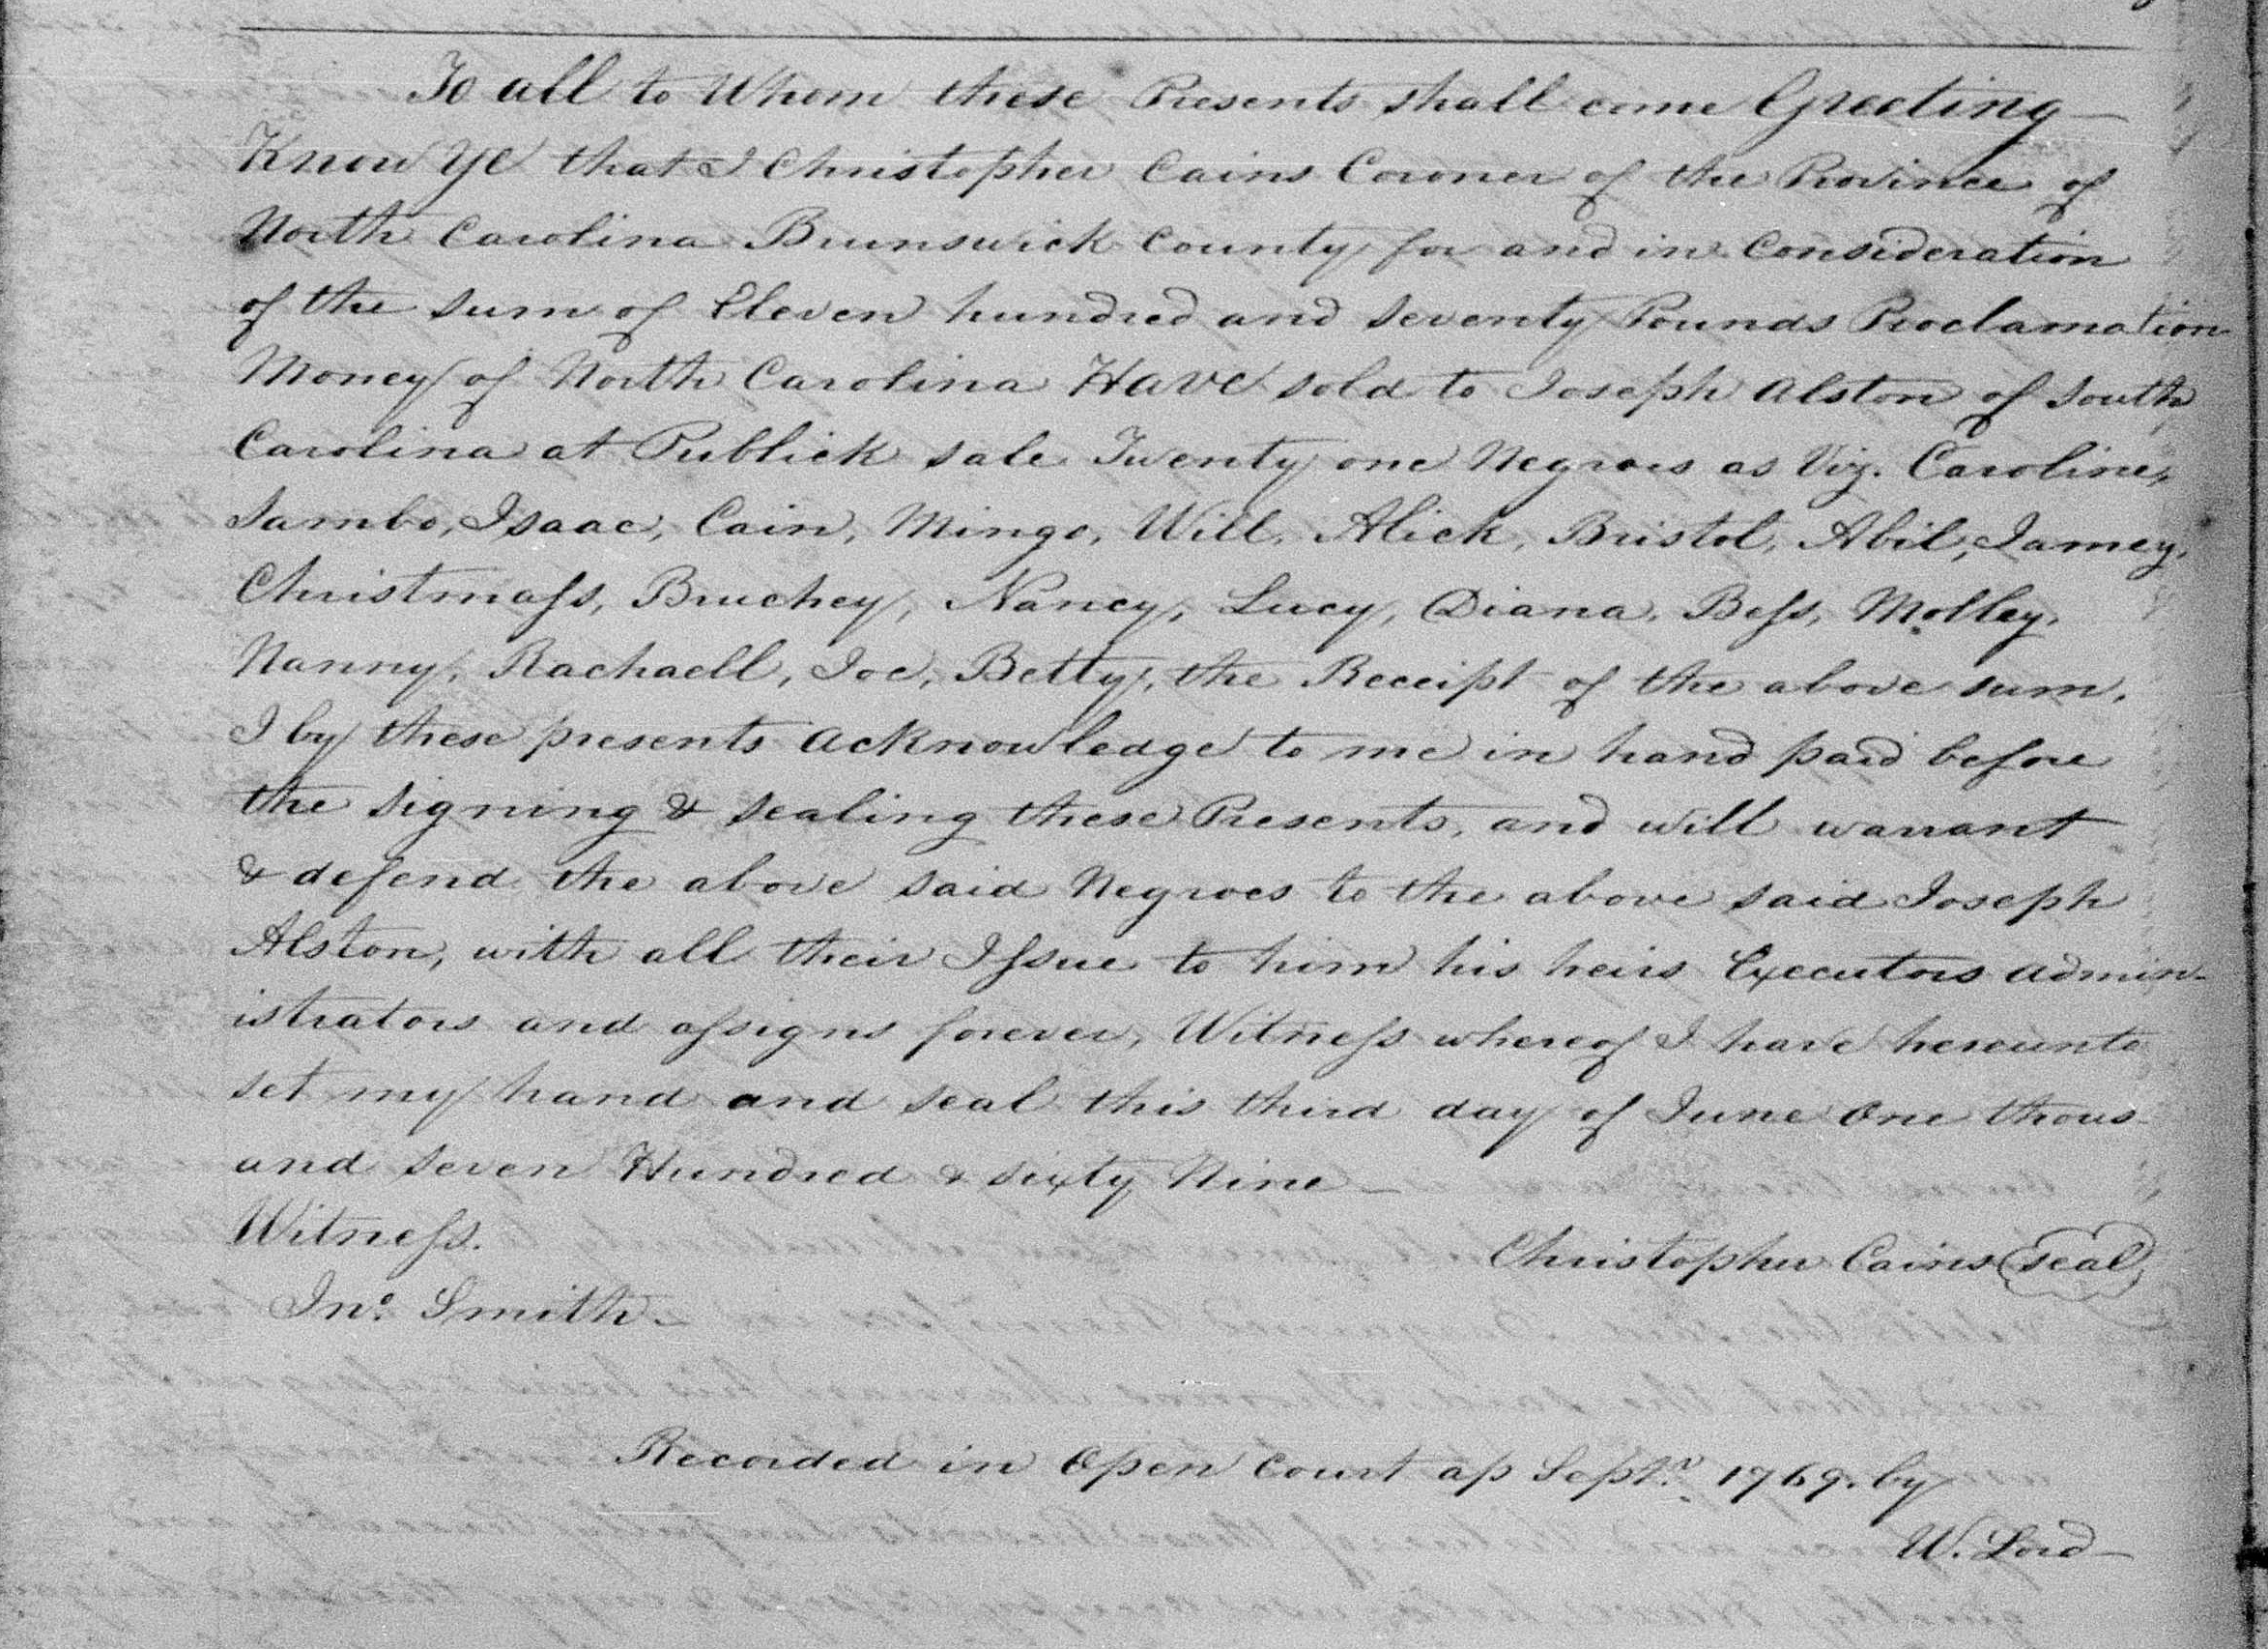 To all to Whom these Presents shall come Greeting—
Know Ye that I Christopher Cains Coroner of the Province of
North Carolina Brunswick County for and in Consideration
of the sum of Eleven hundred and seventy Pounds Proclamation
Money of North Carolina Have sold to Joseph Alston of South
Carolina at Publick sale Twenty one Negroes as Viz. Caroline,
Sambo, Isaac, Cain, Mingo, Will, Alick, Bristol, Abil, Jamey,
Christmass, Bruchey, Nancy, Lucy, Diana, Bess, Molley,
Nanny, Rachaell, Joe, Betty, the Receipt of the above sum,
I by these presents acknowledge to me in hand paid before
the signing & sealing these Presents, and will warrant
& defend the above said Negroes to the above said Joseph
Alston, with all their Issue to him his heirs Executors admin-
istrators and assigns forever, Witness whereof I have hereunto
set my hand and seal this third day of June One thous-
and seven Hundred & sixty Nine—
Witness.
Christopher Cains seal
Jno. Smith—
Recorded in Open Court ap Septr. 1769. by
W. Lord—